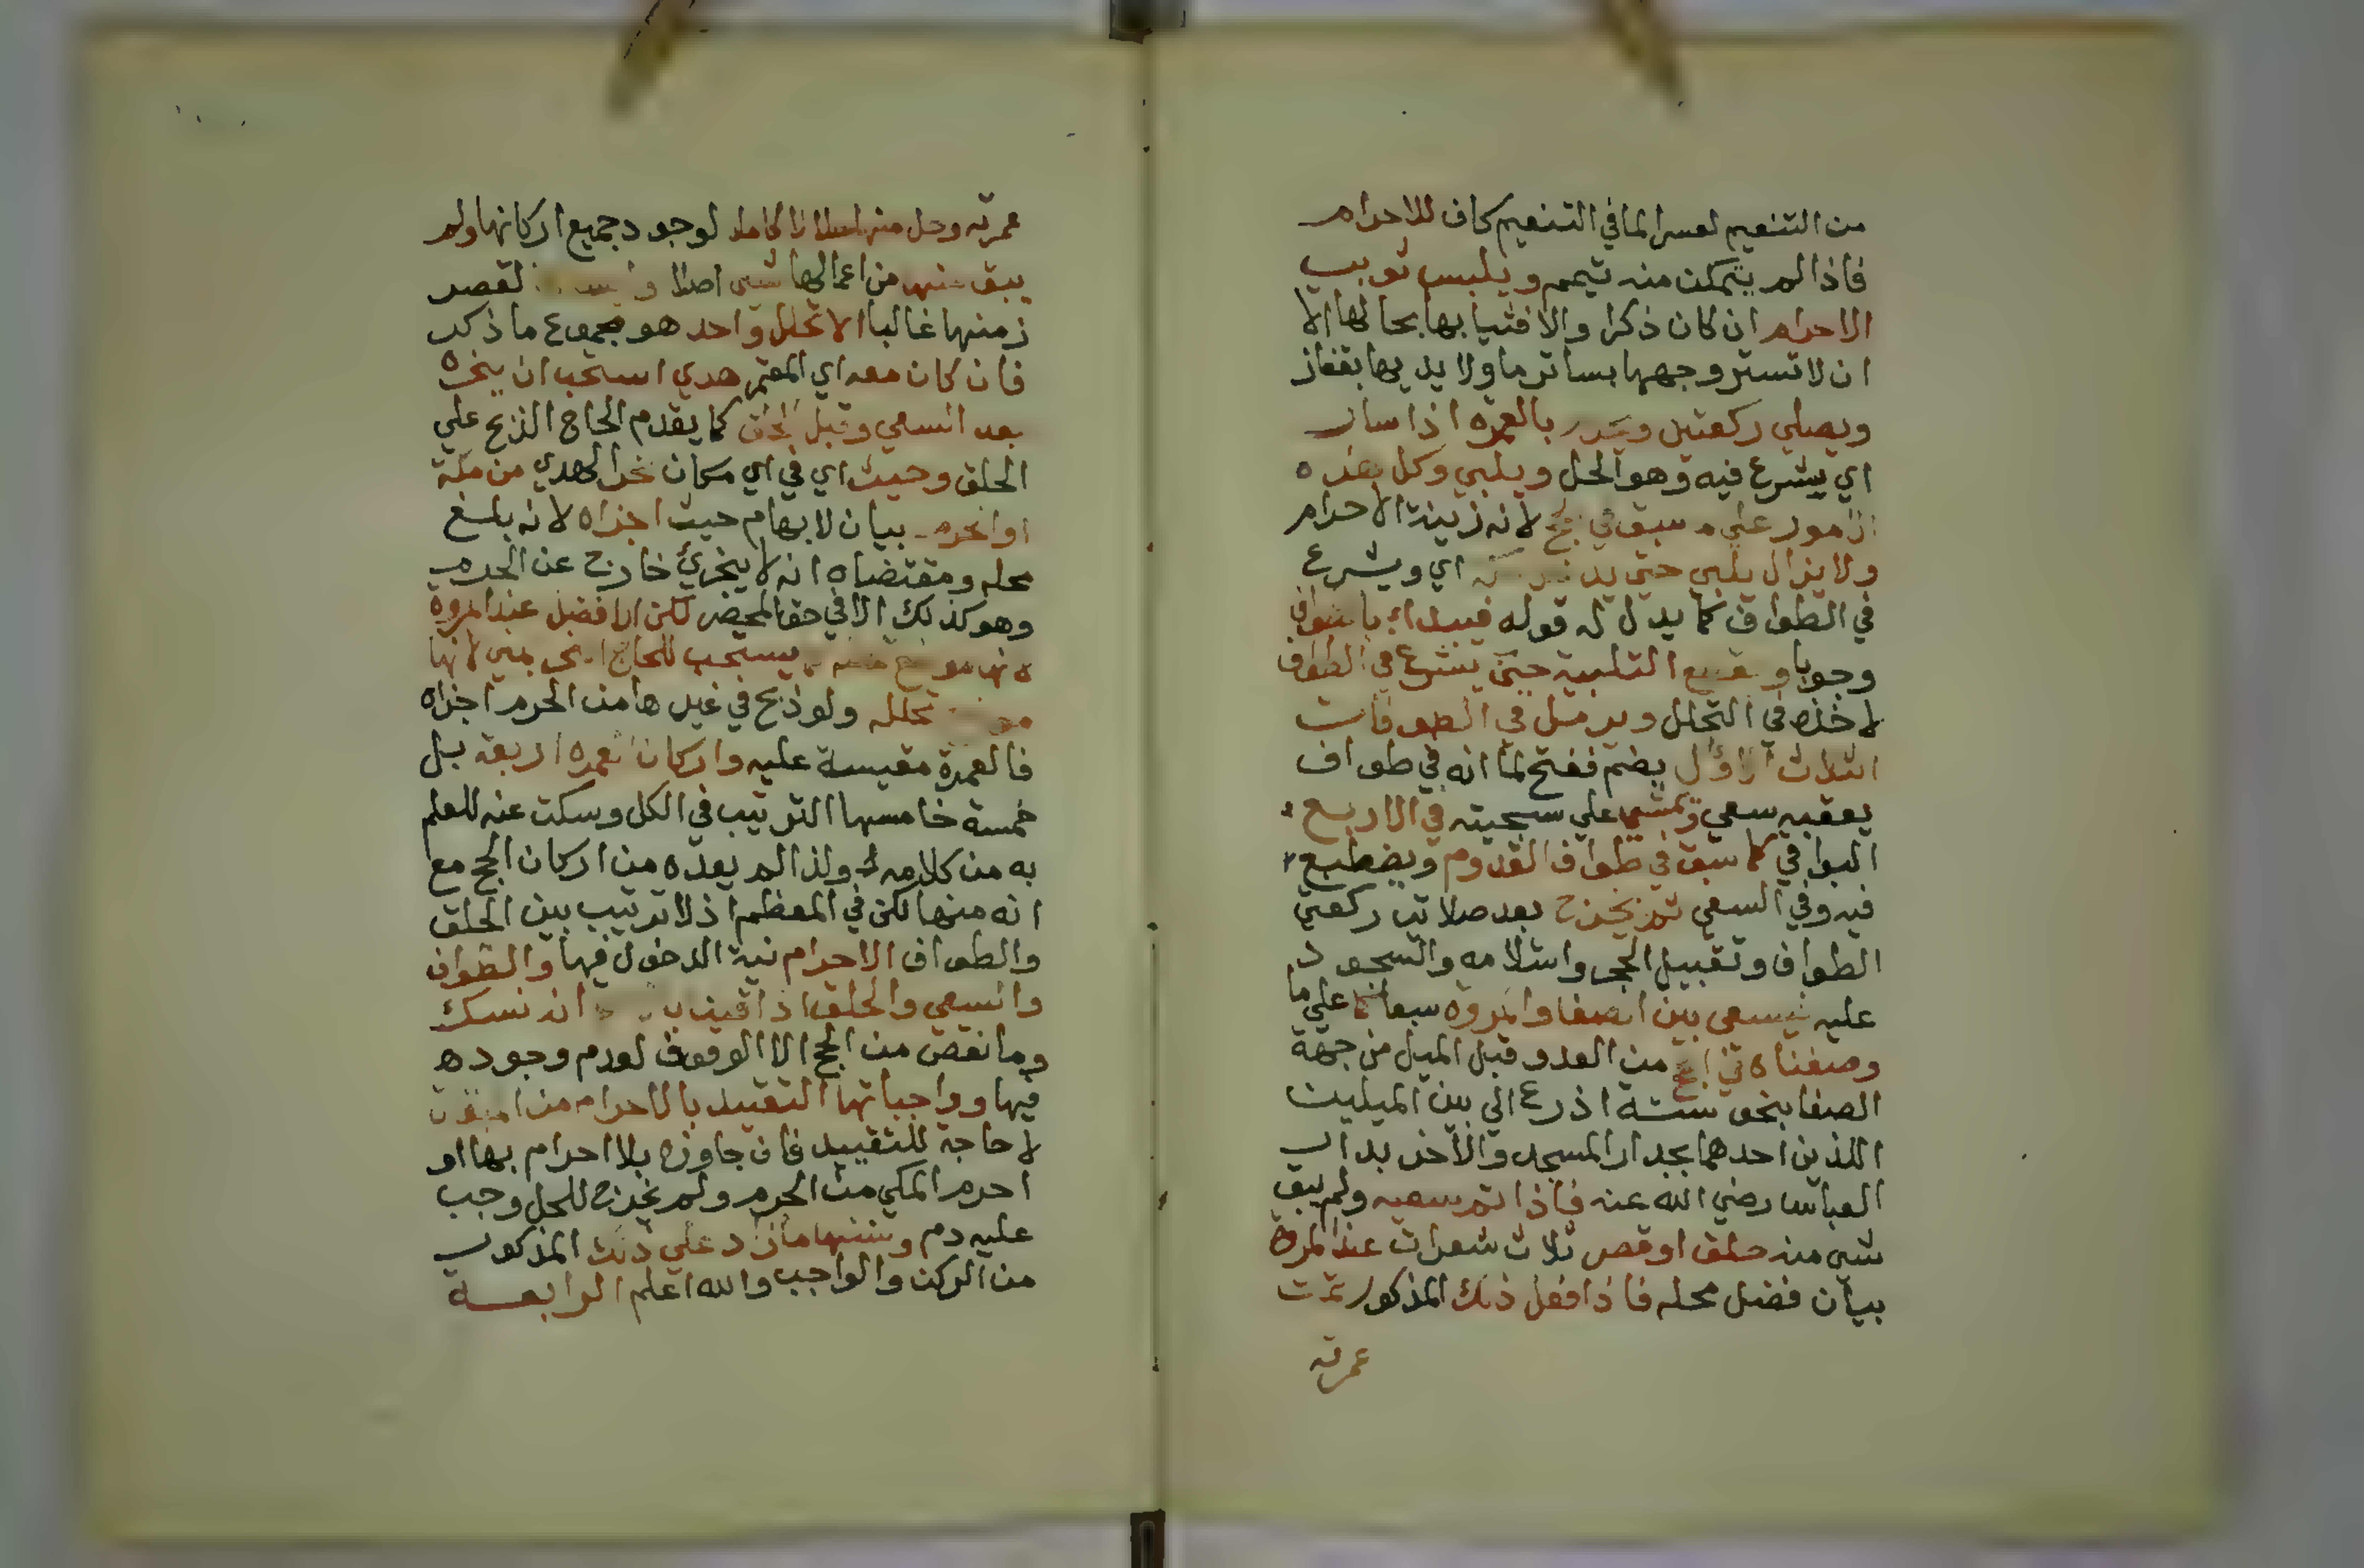 من التنعيم لعسر الما في التنعيم كاف للاحرام
فاذا لم يتمكن منه تيمم ويلبس ثوبي
الاحرام ان كان ذكرا والا فثيابها بحالها الا
ان لا تستر وجهها بساتر ما ولا يديها بقفاز
ويصلي ركعتين بالعمره اذا سار
اي يشرع فيه وهو الحل ويلبي وكل هذه
سبق في لانه زينة الاحرام
ولا يزال يلبي حتي اي ويشرع
في الطواف كما يدل له قوله فيبدا بالطواف
وجوبا و التلبية حين يشرع في الطواف
لاخذه في التحلل ويرمل في الطوفات
الثلاث الاول بضم ففتح لما انه في طواف
يعقبه سعي ويمشي علي سجيته في الاربع
البواقي كما سبق في طواف القدوم ويضطبع
فيه وفي السعي ثم يخرج بعد صلاته ركعتي
الطواف وتقبيل الحجر واستلامه والسجود
عليه فيسعي بين الصفا والمروه سبعا كما علي ما
وصفناه في الحج من العدو قبل الميل من جهة
الصفا بنحو ستة اذرع الي بين الميلين
اللذين احدهما بجدار المسجد والاخر بدار
العباس رضي الله عنه فاذا تم سعيه ولم يبق
شي منه حلق او قصر ثلاث شعرات عند المروة
بيان فضل محله فاذا فعل ذلك المذكور تمت
عمرته
عمرته وحل منها كاملا لوجود جميع اركانها ولم
يبق منها من اعمالها شي اصلا لقصر
زمنها غالبا الا تحلل واحد هو مجموع ما ذكر
فان كان معه اي المعتمر هدي استحب ان ينحره
بعد السعي وقبل الحلق كما يقدم الحاج الذبح علي
الحلق وحيث اي في اي مكان نحر الهدي من مكة
او الحرم بيان لابهام حيث اجزاه لانه بلغ
محله ومقتضاه انه لا يجزي خارج عن الحرم
وهو كذلك الا في حق المحصر لكن الافضل عند المروة
لانها موضع يستحب للحاج بمني لانها
تحلله ولو ذبح في غيرها من الحرم اجزاه
فالعمرة مقيسة عليه واركان العمره اربعة بل
خمسة خامسها الترتيب في الكل وسكت عنه للعلم
به من كلامه ولذا لم يعده من اركان الحج مع
انه منها لكن في المعظم اذ لا ترتيب بين الحلق
والطواف الاحرام نية الدخول فيها والطواف
والسعي والحلق اذا انه نسك
وما نقص من الحج الا الوقوف لعدم وجوده
فيها وواجباتها التقييد بالاحرام من الميقات
لا حاجة للتقييد فان جاوزه بلا احرام بها او
احرم المكي من الحرم ولم يخرج للحل وجب
عليه دم وسننها ما زاد علي ذلك المذكور
من الركن والواجب والله اعلم الرابعة